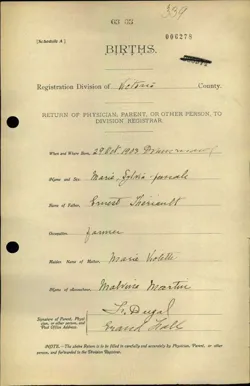 339
006278
[Schedule A]
BIRTHS.
Registration Division of Victoria County.
RETURN OF PHYSICIAN, PARENT, OR OTHER PERSON, TO
DIVISION REGISTRAR.
When and Where Born, 29 Oct 1903
Name and Sex Marie, female
Name of Father, Ernest Theriault
Occupation farmer
Maiden Name of Mother, Marie Violette
Name of Accoucheur, Martin
Signature of Parent, Physician,
or other person, and
Post Office Address.
Grand Falls
NOTE.—The above Return is to be filled in carefully and accurately by Physician, Parent, or other
person, and forwarded to the Division Registrar.